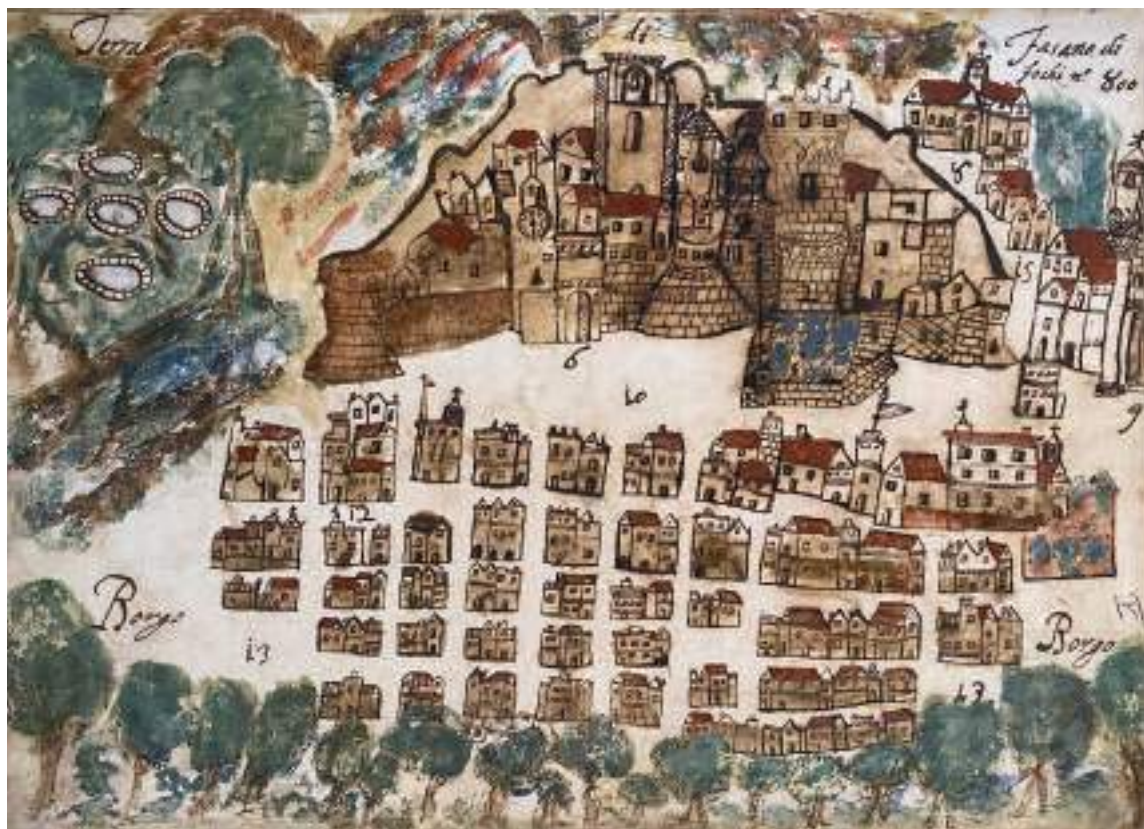 Terra
Fasano di
fochi nº 800
6
10
9
12
Borgo
Borgo
13
13